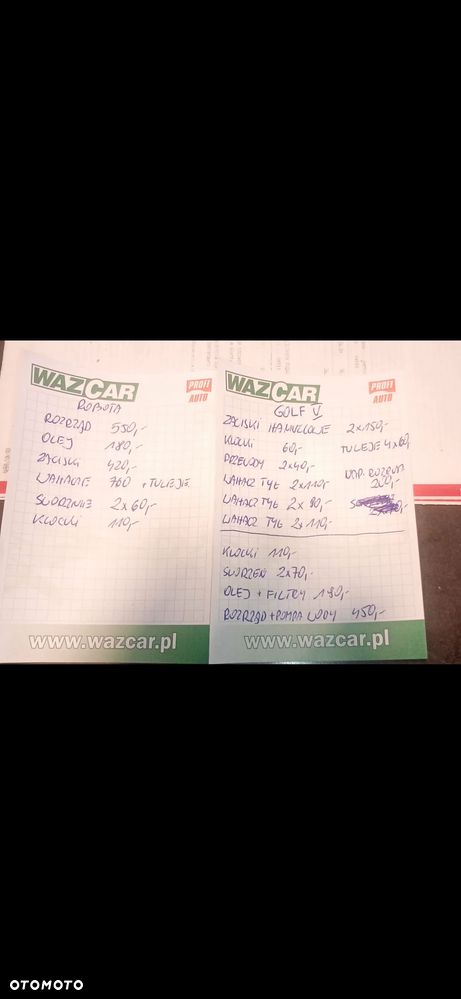 WAZCAR
PROFI AUTO
ROBOTA
ROZRZĄD 550,-
OLEJ 180,-
ZACISKI 420,-
WAHACZE 760 + TULEJE
SWORZNIE 2x60,-
KLOCKI 110,-
www.wazcar.pl
WAZCAR
PROFI AUTO
GOLF V
ZACISKI HAMULCOWE 2x150,-
KLOCKI 60,- TULEJE 4x60,-
PRZEWODY 2x40,-
WAHACZ TYŁ 2x110,- 200,-
WAHACZ TYŁ 2x90,-
WAHACZ TYŁ 2x110,-
KLOCKI 110,-
SWORZEŃ 2x70,-
OLEJ + FILTRY 190,-
ROZRZĄD + POMPA WODY 450,-
www.wazcar.pl
OTOMOTO